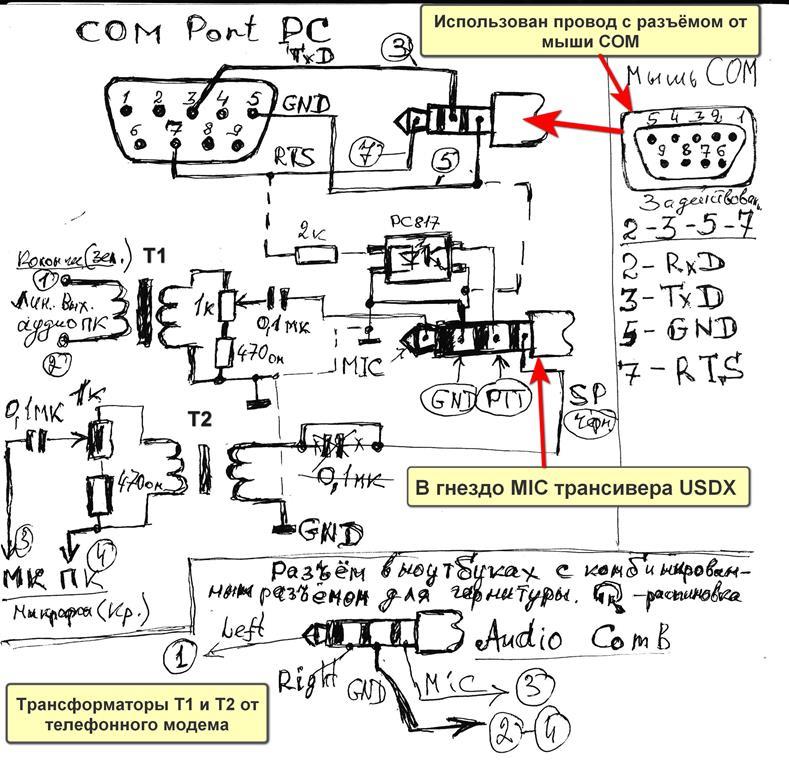 COM Port PC
Использован провод с разъёмом от
мыши COM
TxD
3
Мышь COM
1 2 3 4 5
GND
6 7 8 9
7
5
RTS
5 4 3 2 1
9 8 7 6
2-3-5-7
2 - RxD
3 - TxD
5 - GND
7 - RTS
PC817
2к
(Зел.)
T1
1
Лин. вых.
аудио ПК
2
1к
0,1мк
470ом
MIC
GND
PTT
SP
Черн
В гнездо MIC трансивера USDX
0,1мк
1к
T2
470ом
0,1мк
GND
3
4
МК ПК
Микрофон (Кр.)
Разъём в ноутбуках с комбинирован-
ным разъёмом для гарнитуры.
-распиновка
Left
1
Audio Comb
Right
GND
Mic
3
2-4
Трансформаторы T1 и T2 от
телефонного модема